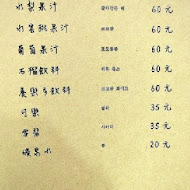 水梨果汁 60元
水蜜桃果汁 60元
葡萄果汁 60元
石榴飲料 60元
養樂多飲料 60元
可樂 콜라 35元
雪碧 35元
礦泉水 물 20元